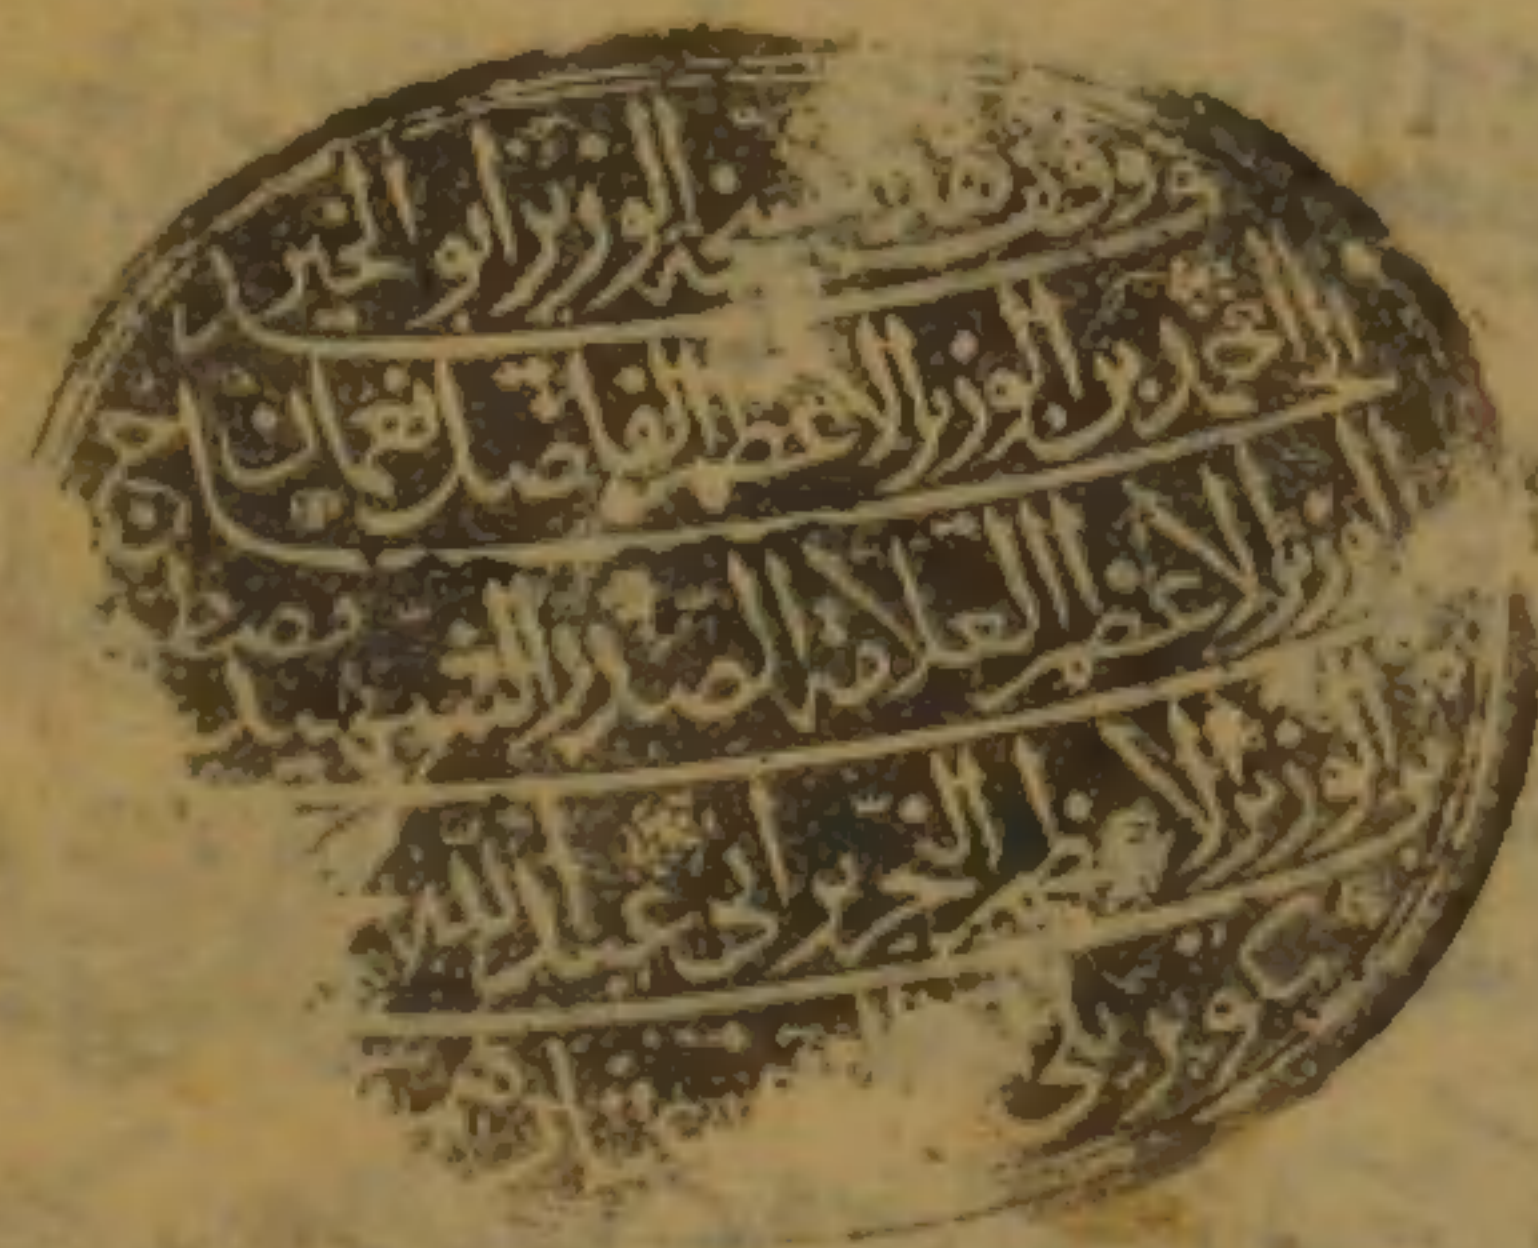 وقف هذه النسخة الوزير ابو الخير
احمد بن الوزير الاعظم الفاضل نعمان
الوزير الاعظم العلامة الصدر الشهيد مصطفى
بن الوزير الاعظم النحرير ابي عبد الله
بكوبريلي